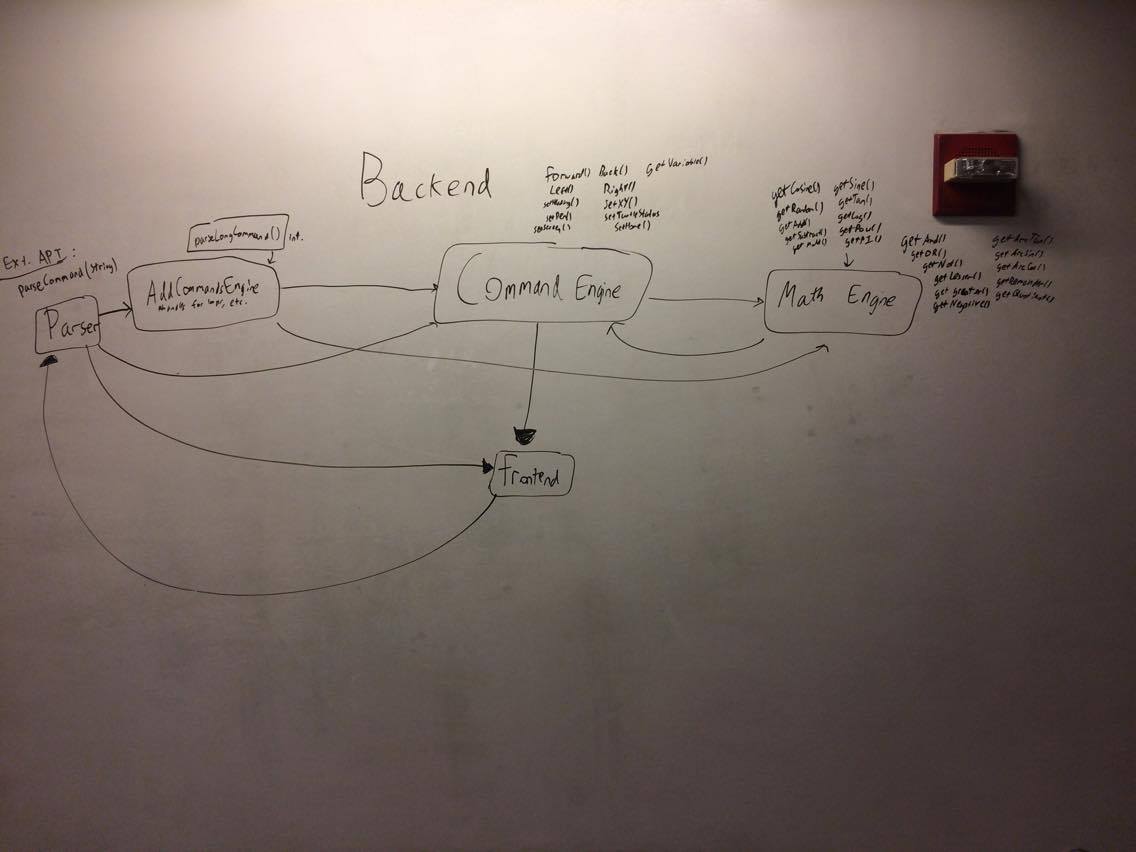 Backend
Ext. API:
parseCommand(string)
Parser
parseLongCommand()
int.
AddCommandsEngine
for loops, etc.
Forward() Back() getVariable()
Left() Right()
setHeading() SetXY()
setPen() setTurtleStatus
setHome()
Command Engine
getCosine() getSine()
getRandom() getTan()
getAdd() getLog()
getSubtract() getPow()
getMult() getPI()
Math Engine
getAnd() getArcTan()
getOR() getArcSin()
getNot() getArcCos()
getLesser() getRemainder()
getgreater() getQuotient()
getNegative()
Frontend